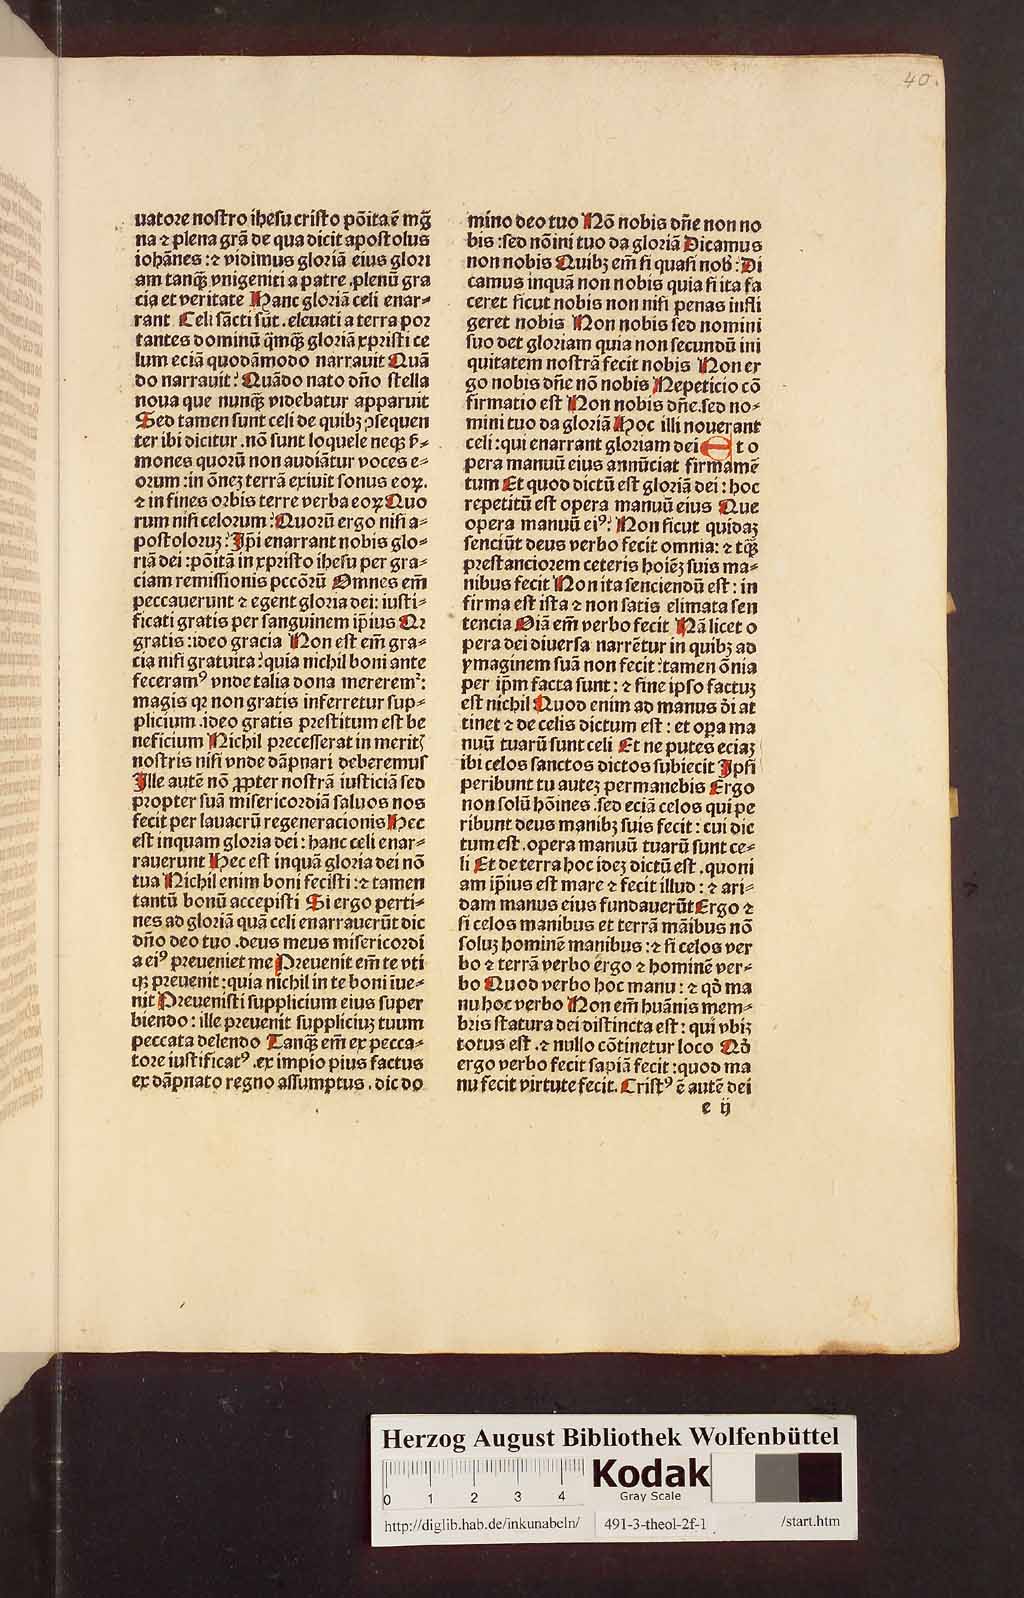 40.
uatore nostro ihesu cristo põita ē mgᷓ
na ⁊ plena grã de qua dicit apostolus
iohãnes :⁊ vidimus gloriã eius glori
am tanqᷓ vnigeniti a patre .plenũ gra
cia et veritate Hanc gloriã celi enar⸗
rant Celi sãcti sũt .eleuati a terra por
tantes dominũ q̃mqᷓ gloriã xpristi ce
lum eciã quodãmodo narrauit Quã
do narrauit? Quãdo nato dño stella
noua que nunqᷓ videbatur apparuit
Sed tamen sunt celi de quibꝫ ꝯsequen
ter ibi dicitur .nõ sunt loquele neqꝫ s̃⸗
mones quorũ non audiãtur voces e⸗
orum :in õneꝫ terrã exiuit sonus eoꝝ.
⁊ in fines orbis terre verba eoꝝ Quo
rum nisi celorum? Quorũ ergo nisi a⸗
postoloruꝫ? Ip̃i enarrant nobis glo⸗
riã dei :põitã in xpristo ihesu per gra⸗
ciam remissionis pccõrũ Omnes em̃
peccauerunt ⁊ egent gloria dei: iusti⸗
ficati gratis per sanguinem ip̃ius Qꝛ
gratis :ideo gracia Non est em̃ gra⸗
cia nisi gratuita? quia nichil boni ante
feceramꝰ vnde talia dona mereremᷣ:
magis qꝛ non gratis inferretur sup⸗
plicium .ideo gratis prestitum est be
neficium Nichil precesserat in meritꝭ
nostris nisi vnde dãpnari deberemus
Ille autẽ nõ ꝓpter nostrã iusticiã sed
propter suã misericordiã saluos nos
fecit per lauacrũ regeneracionis Hec
est inquam gloria dei : hanc celi enar⸗
rauerunt Hec est inquã gloria dei nõ
tua Nichil enim boni fecisti :⁊ tamen
tantũ bonũ accepisti Si ergo perti⸗
nes ad gloriã quã celi enarrauerũt dic
dño deo tuo .deus meus misericordi
a eiꝰ preueniet me Preuenit em̃ te vti
qꝫ preuenit :quia nichil in te boni iũe⸗
nit Preuenisti supplicium eius super
biendo : ille preuenit suppliciuꝫ tuum
peccata delendo Tanqᷓ em̃ ex pecca⸗
tore iustificatꝰ .ex impio pius factus
ex dãpnato regno assumptus . dic do
mino deo tuo Nõ nobis dñe non no
bis :sed nõini tuo da gloriã Dicamus
non nobis Quibꝫ em̃ si quasi nob̃ : Di
camus inquã non nobis quia si ita fa
ceret sicut nobis non nisi penas infli
geret nobis Non nobis sed nomini
suo det gloriam quia non secundũ ini
quitatem nostrã fecit nobis Non er
go nobis dñe nõ nobis Repeticio cõ
firmatio est Non nobis dñe .sed no⸗
mini tuo da gloriã Hoc illi nouerant
celi :qui enarrant gloriam dei Et o
pera manuũ eius annũciat firmamẽ
tum Et quod dictũ est gloriã dei : hoc
repetitũ est opera manuũ eius Que
opera manuũ eiꝰ? Non sicut quidaꝫ
senciũt deus verbo fecit omnia: ⁊ tqᷓ
prestanciorem ceteris hoiẽꝫ suis ma⸗
nibus fecit Non ita senciendũ est : in
firma est ista ⁊ non satis elimata sen
tencia Oĩa em̃ verbo fecit Nã licet o
pera dei diuersa narrẽtur in quibꝫ ad
ymaginem suã non fecit :tamen õnia
per ip̃m facta sunt : ⁊ sine ipso factuꝫ
est nichil Quod enim ad manus õi at
tinet ⁊ de celis dictum est : et opa ma
nuũ tuarũ sunt celi Et ne putes eciaꝫ
ibi celos sanctos dictos subiecit Ipsi
peribunt tu auteꝫ permanebis Ergo
non solũ hõines .sed eciã celos qui pe
ribunt deus manibꝫ suis fecit : cui dic
tum est . opera manuũ tuarũ sunt ce⸗
li Et de terra hoc ideꝫ dictũ est .quoni
am ip̃ius est mare ⁊ fecit illud : ⁊ ari⸗
dam manus eius fundauerũt Ergo ⁊
si celos manibus et terrã mãibus nõ
soluꝫ hominẽ manibus :⁊ si celos ver
bo ⁊ terrã verbo ergo ⁊ hominẽ ver⸗
bo Quod verbo hoc manu : ⁊ qð ma
nu hoc verbo Non em̃ huãnis mem⸗
bris statura dei distincta est : qui vbiꝫ
totus est .⁊ nullo cõtinetur loco Qð
ergo verbo fecit sapiã fecit :quod ma
nu fecit virtute fecit. Cristꝰ ẽ autẽ dei
e ij
Herzog August Bibliothek Wolfenbüttel
0 1 2 3 4
Kodak
Gray Scale
http://diglib.hab.de/inkunabeln/ 491-3-theol-2f-1 /start.htm